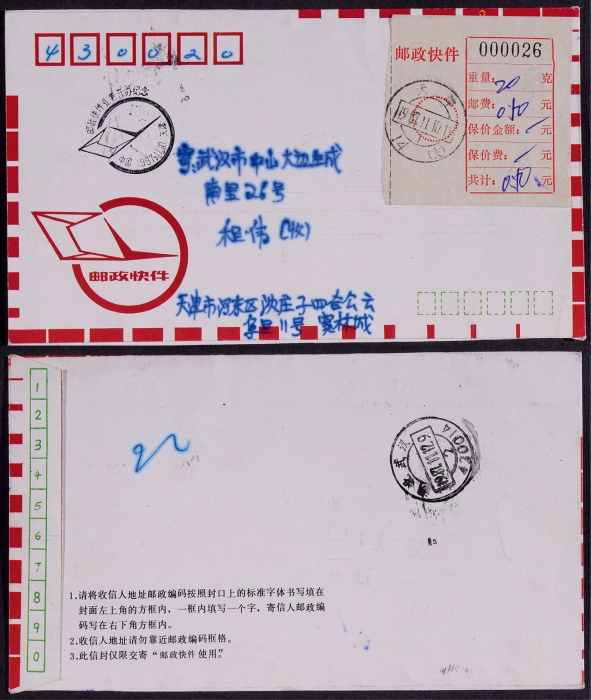 430020
邮政快件
000026
重量: 20 克
邮费: 0.50 元
保价金额: 元
保价费: 元
共计: 0.50 元
天津
寄:武汉市中山大道生成
南里26号
程伟(收)
邮政快件
天津市河东区沈庄子四合公云
阜里11号 窦林城
1
2
3
4
5
6
7
8
9
0
武汉
430014
1.请将收信人地址邮政编码按照封口上的标准字体书写填在
封面左上角的方框内,一框内填写一个字,寄信人邮政编
码写在右下角方框内。
2.收信人地址请勿靠近邮政编码框格。
3.此信封仅限交寄“邮政快件使用。”